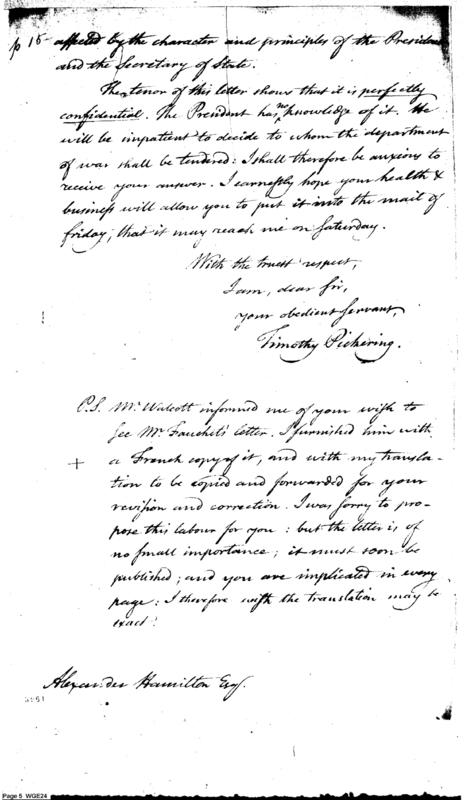 p 15 affected by the character and principles of the President
and the Secretary of State.
The tenor of this letter shows that it is perfectly
confidential. The President has no knowledge of it. He
will be impatient to decide to whom the department
of war shall be tendered: I shall therefore be anxious to
receive your answer. I earnestly hope your health &
business will allow you to put it into the mail of
friday, that it may reach me on Saturday.
With the truest respect,
I am, dear Sir,
your obedient servant,
Timothy Pickering.
P.S. Mr Wolcott informed me of your wish to
see Mr. Fauchet's letter. I furnished him with
+ a French copy of it, and with my transla-
tion to be copied and forwarded for your
revision and correction. I was sorry to pro-
pose this labour for you: but the letter is of
no small importance; it must soon be
published; and you are implicated in every
page: I therefore wish the translation may be
exact.
Alexander Hamilton Esq.
Page 5 WGE24